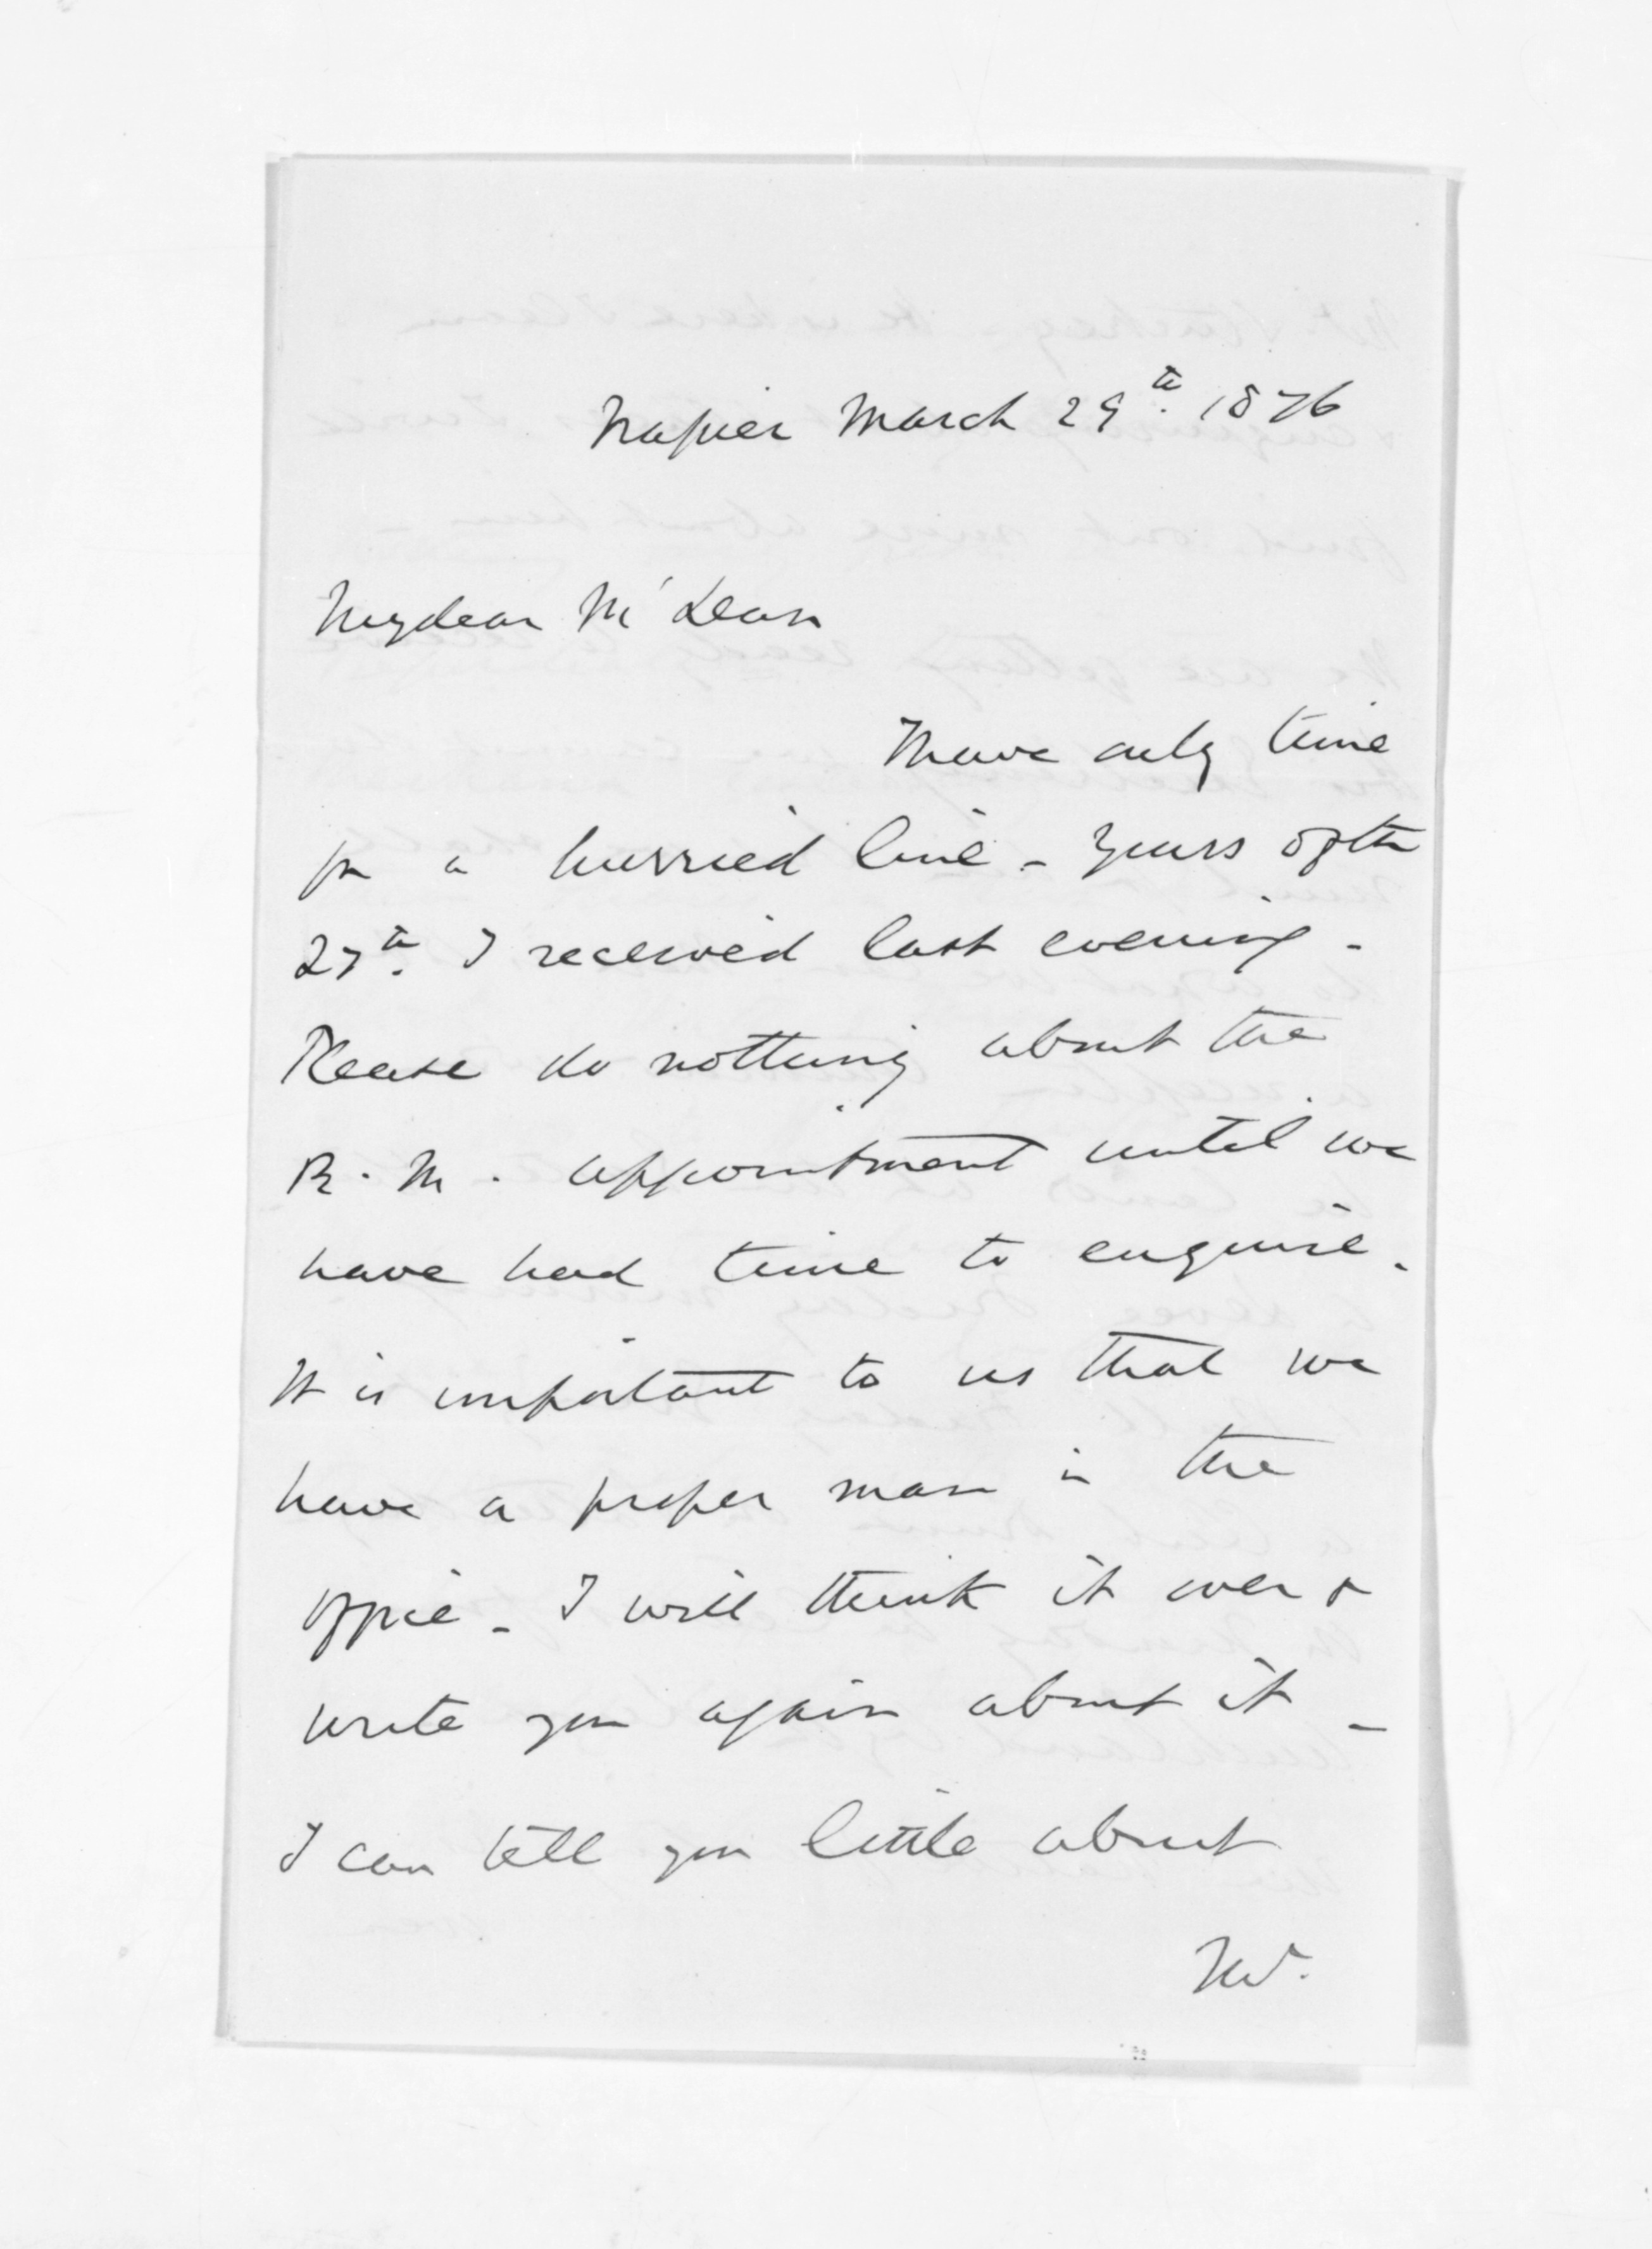 Napier March 29th. 1876
My dear McLean
I have only time
for a hurried line - Yours of the
27th. I received last evening -
Please do nothing about the
R. M. appointment until we
have had time to enquire.
It is important to us that we
have a proper man in the
office - I will think it over &
write you again about it -
I can tell you little about
Mr.